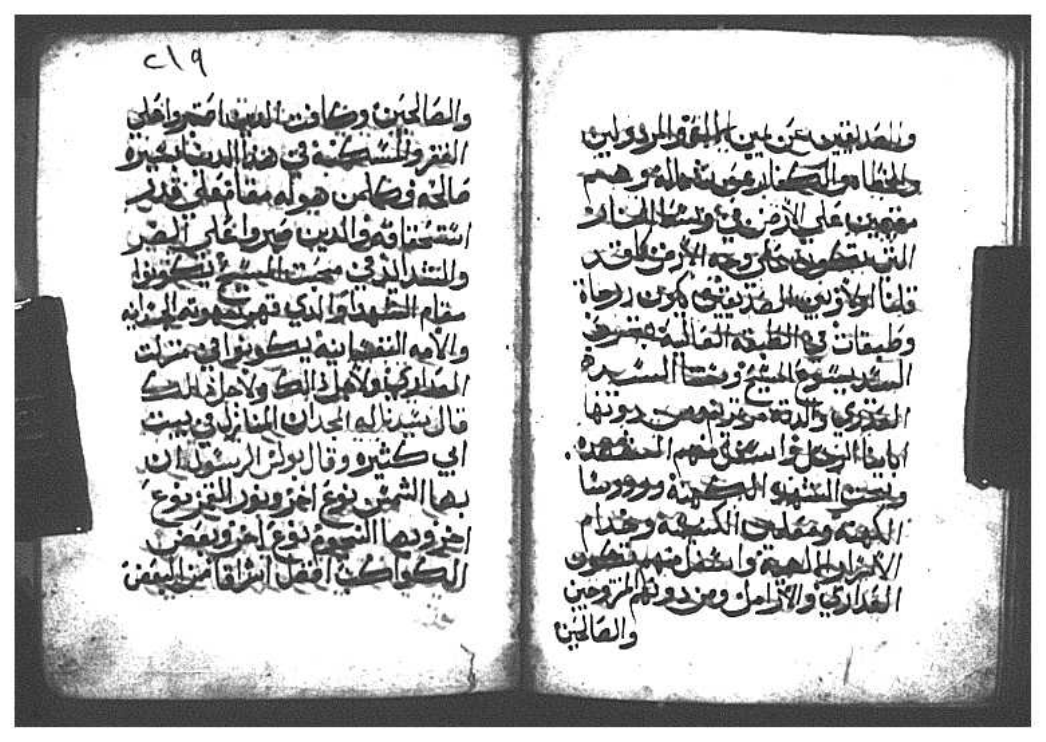 والصديقين عن يمين الملك والمرذولين
والخطاه والكفار عن شماله وهم
مقيمين علي الارض في وسط النار
التي تكون علي وجه الارض كلها وقد
قلنا ان الصديقين يكونون درجاة
وطبقات في الطبقه العاليه
السيد يسوع المسيح وستنا السيده
العدري والدة ومن دونها
ابائنا الرسل واسفل منهم
وتحت الشهدا الكهنة ورووسا
الكهنه ومعلمين الكنيسة وخدام
الاسرار الالهية واسفل منهم تكون
العداري والارامل ومن دونهم المزوجين
والصالحين
٢١٩
والصالحين وكافت الدين اصبروا علي
الفقر والمسكنه في هذا الدنيا بخيره
صالحه فكلمن هو له مقام علي قدر
استحقاقه والدين صبروا علي الضر
والشدايد في محبت المسيح يكونوا
مقام الشهدا والدي قهر شهوته الجسدانيه
والآمه النفسانيه يكونوا في منزلت
العداري ولاجل دالك ولاجل ذلك
قال سيدنا له المجد ان المنازل في بيت
ابي كثيره وقال بولس الرسول ان
بها الشمس نوع اخر ونور القمر نوع
اخر وبها النجوم نوع اخر وبعض
الكواكب افضل اشراقا من البعض